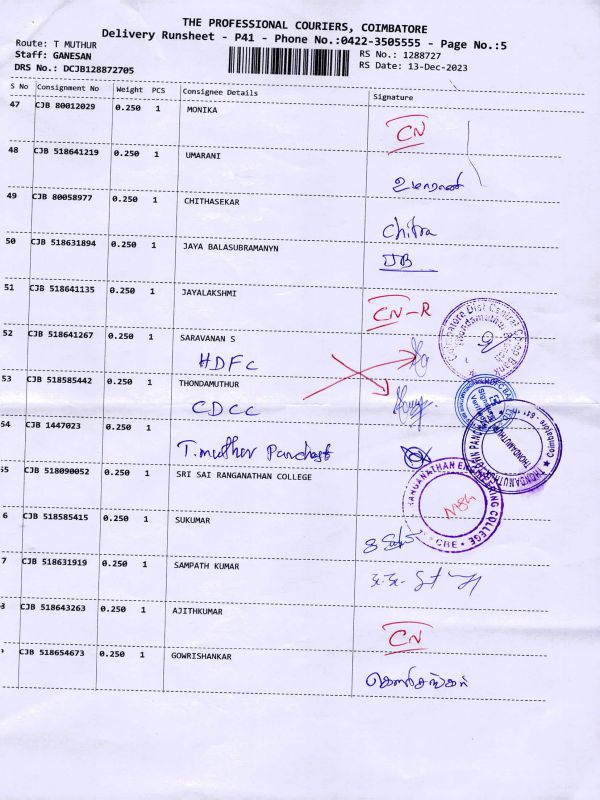 THE PROFESSIONAL COURIERS, COIMBATORE
Delivery Runsheet - P41 - Phone No.:0422-3505555 - Page No.:5
Route: T MUTHUR RS No.: 1288727
Staff: GANESAN RS Date: 13-Dec-2023
DRS No.: DCJB128872705
S No Consignment No Weight PCS Consignee Details Signature
47 CJB 80012029 0.250 1 MONIKA
CN
48 CJB 518641219 0.250 1 UMARANI
உமாராணி
49 CJB 80058977 0.250 1 CHITHASEKAR
Chitra
50 CJB 518631894 0.250 1 JAYA BALASUBRAMANYN
JB
51 CJB 518641135 0.250 1 JAYALAKSHMI
CN-R
52 CJB 518641267 0.250 1 SARAVANAN S
HDFC
53 CJB 518585442 0.250 1 THONDAMUTHUR
CDCC
54 CJB 1447023 0.250 1
T.muthur
55 CJB 518090052 0.250 1 SRI SAI RANGANATHAN COLLEGE
RANGANATHAN ENGINEERING COLLEGE
CBE
6 CJB 518585415 0.250 1 SUKUMAR
7 CJB 518631919 0.250 1 SAMPATH KUMAR
CJB 518643263 0.250 1 AJITHKUMAR
CN
CJB 518654673 0.250 1 GOWRISHANKAR
கௌரிசங்கர்